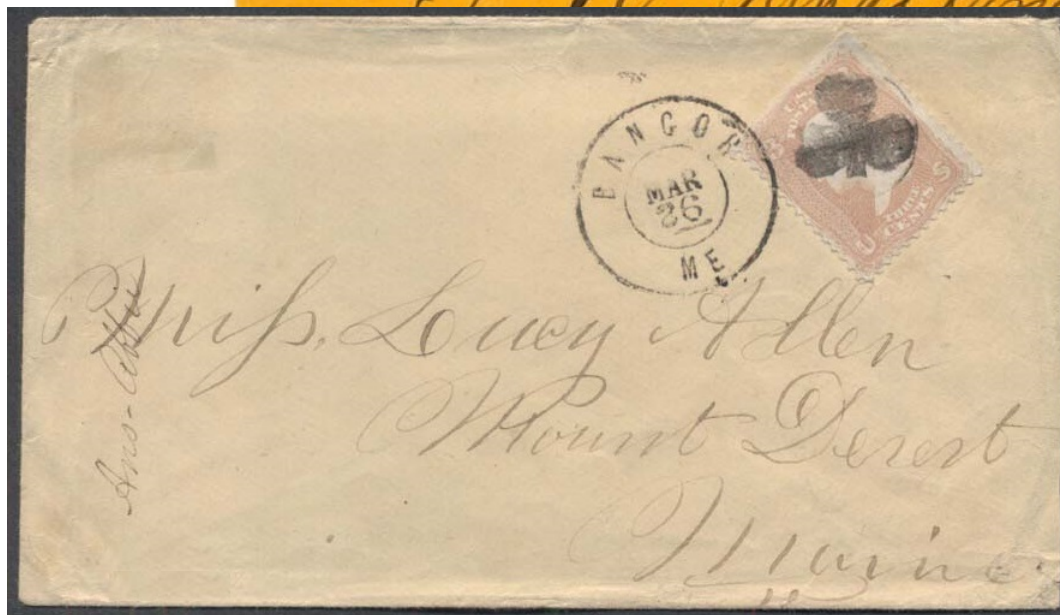 BANGOR
MAR
26
ME
THREE
CENTS
Miss. Lucy Allen
Mount Desert
Maine.
Ans-